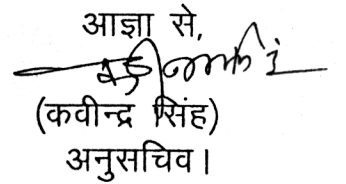 आज्ञा से,
(कवीन्द्र सिंह)
अनुसचिव।